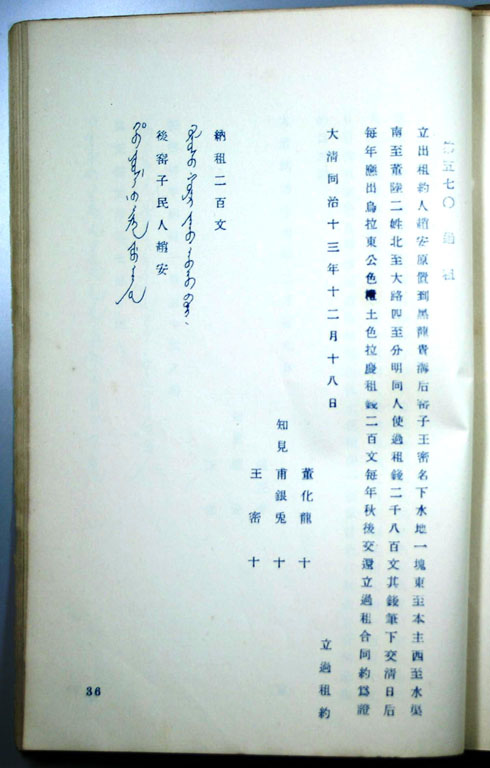 五七〇 過租
立出租約人趙安原置到黑龍貴溝后窑子王密名下水地一塊東至本主西至水渠
南至董陸二姓北至大路四至分明同人使過租錢二千八百文其錢筆下交清日后
每年應出烏拉東公色楞土色拉慶租錢二百文每年秋後交還立過租合同約爲證
大清同治十三年十二月十八日
立過租約
董化龍 十
知見 甫銀兎 十
王密 十
納租二百文
後窑子民人趙安
36